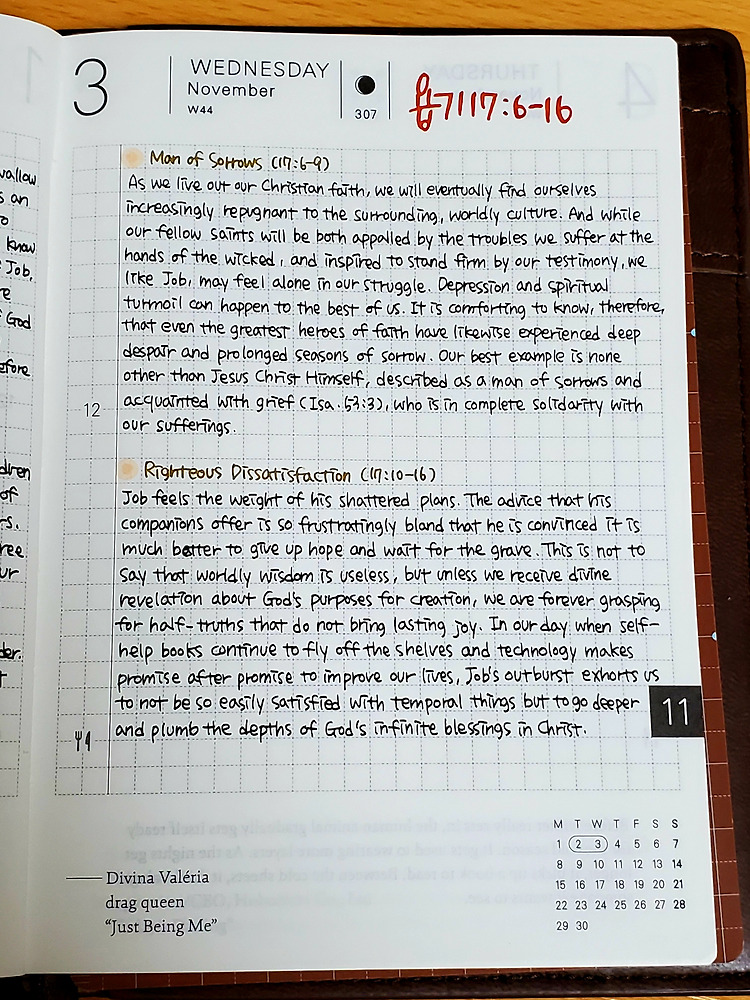 s an
know
Job,
God
of
3
WEDNESDAY
November
W44
307
욥기17:6-16
Man of Sorrows (17:6-9)
As we live out our Christian faith, we will eventually find ourselves
increasingly repugnant to the surrounding, worldly culture. And while
our fellow saints will be both appalled by the troubles we suffer at the
hands of the wicked, and inspired to stand firm by our testimony, we
like Job, may feel alone in our struggle. Depression and spiritual
turmoil can happen to the best of us. It is comforting to know, therefore,
that even the greatest heroes of faith have likewise experienced deep
despair and prolonged seasons of sorrow. Our best example is none
other than Jesus Christ Himself, described as a man of sorrows and
12
acquainted with grief (Isa. 53:3), who is in complete solidarity with
our sufferings.
Righteous Dissatisfaction (17:10-16)
Job feels the weight of his shattered plans. The advice that his
companions offer is so frustratingly bland that he is convinced it is
much better to give up hope and wait for the grave. This is not to
say that worldly wisdom is useless, but unless we receive divine
revelation about God's purposes for creation, we are forever grasping
for half-truths that do not bring lasting joy. In our day when self-
help books continue to fly off the shelves and technology makes
promise after promise to improve our lives, Job's outburst exhorts us
to not be so easily satisfied with temporal things but to go deeper
and plumb the depths of God's infinite blessings in Christ.
11
M T W T F S S
1 2 3 4 5 6 7
8 9 10 11 12 13 14
15 16 17 18 19 20 21
22 23 24 25 26 27 28
29 30
Divina Valéria
drag queen
“Just Being Me”